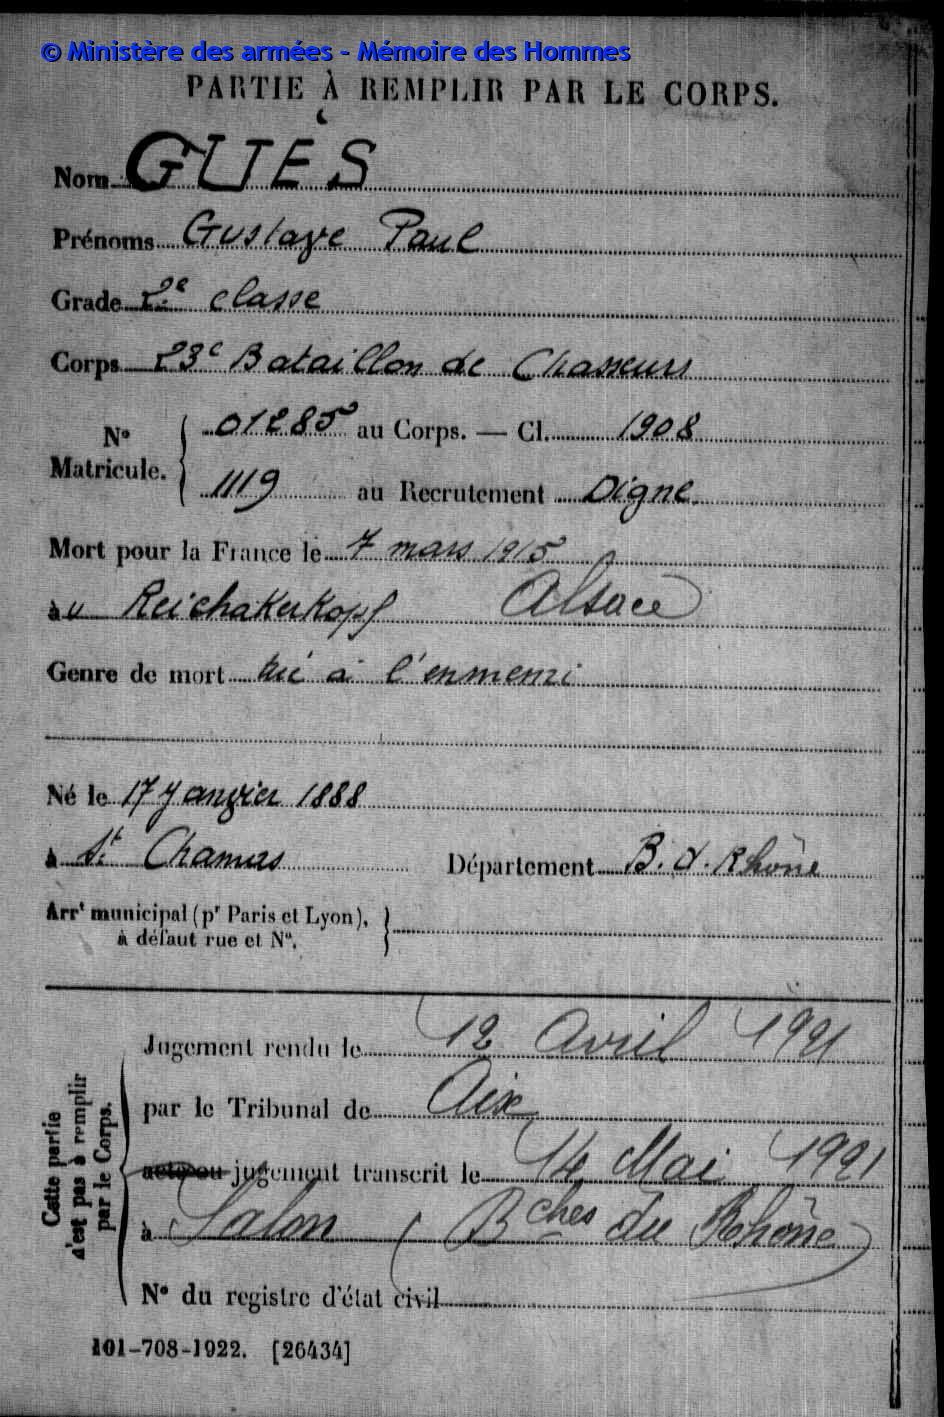 © Ministère des armées - Mémoire des Hommes
PARTIE À REMPLIR PAR LE CORPS.
Nom GUÈS
Prénoms Gustave Paul
Grade 2e classe
Corps 23e Bataillon de Chasseurs
N° Matricule. { 01285 au Corps. — Cl. 1908
1119 au Recrutement Digne
Mort pour la France le 7 mars 1915
à u Reichakerkopf Alsace
Genre de mort tué à l'ennemi
Né le 17 Janvier 1888
à St. Chamas Département B. d. Rhône
Arrt municipal (pr Paris et Lyon), }
à défaut rue et N°.
Cette partie n'est pas à remplir par le Corps.
Jugement rendu le 12 Avril 1921
par le Tribunal de Aix
acte ou jugement transcrit le 14 Mai 1921
à Salon (Bches du Rhône)
N° du registre d'état civil
101-708-1922. [26434]